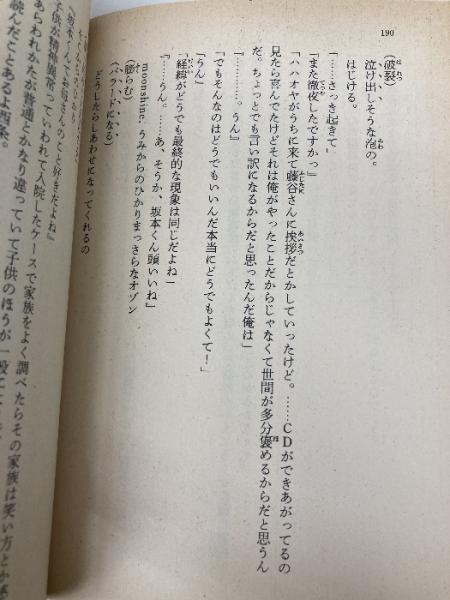 190
(破裂)
泣け出しそうな泡の。
はじける。
「……さっき起きて」
「また徹夜したですかっ」
「ハハオヤがうちに来て藤谷さんに挨拶だとかしていったけど。……CDができあがってるの
見たら喜んでたけどそれは俺がやったことだからじゃなくて世間が多分褒めるからだと思うん
だ。ちょっとでも言い訳になるからだと思ったんだ俺は」
「………。うん」
「でもそんなのはどうでもいいんだ本当にどうでもよくて!」
「うん」
「経緯がどうでも最終的な現象は同じだよね」
「……うん。……あ、そうか、坂本くん頭いいね」
moonshine. うみからのひかりまっさらなオゾン
(膨らむ)
(バラードになる)
どうしたらしあわせになってくれるの
『坂本くんてお母さんのこと好きだよね』
子供が精神異常っていわれて入院したケースで家族をよく調べたらその家族は笑い方とか
あらわれかたが普通とかなり違っていて子供のほうが一般に
読んだことあるよ西条。